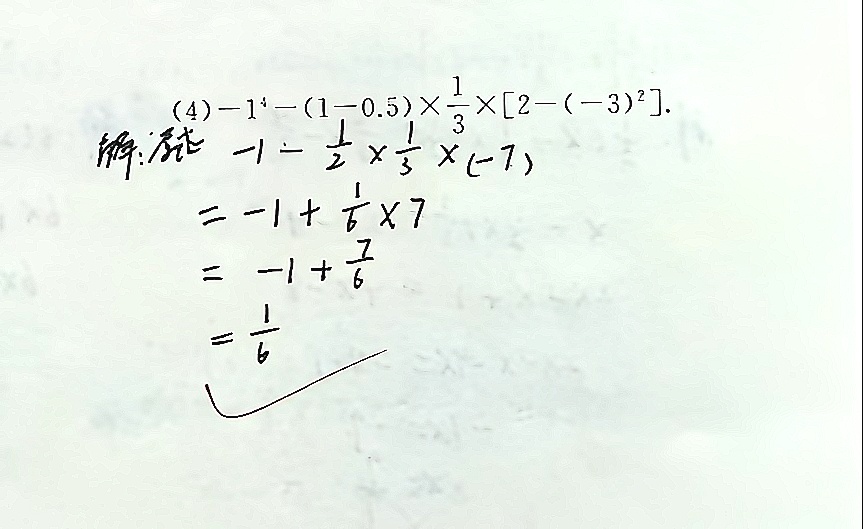 (4)－1⁴－(1－0.5)×1/3×[2－(－3)²].
解:原式 －1－1/2×1/3×(－7)
=－1+1/6×7
=－1+7/6
=1/6